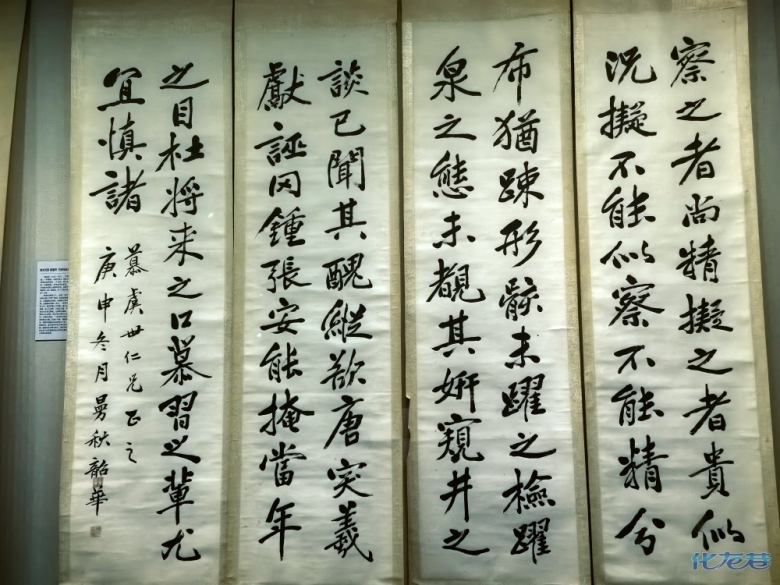 察之者尚精擬之者貴似
況擬不能似察不能精分
布猶疎形骸未躍之檢躍
泉之態未覩其妍窺井之
談已聞其醜縱欲唐突羲
獻誣罔鍾張安能掩當年
之目杜將来之口慕習之輩尤
宜慎諸
慕虞世仁兄正之
庚申冬月曼秋韶華
化龙巷